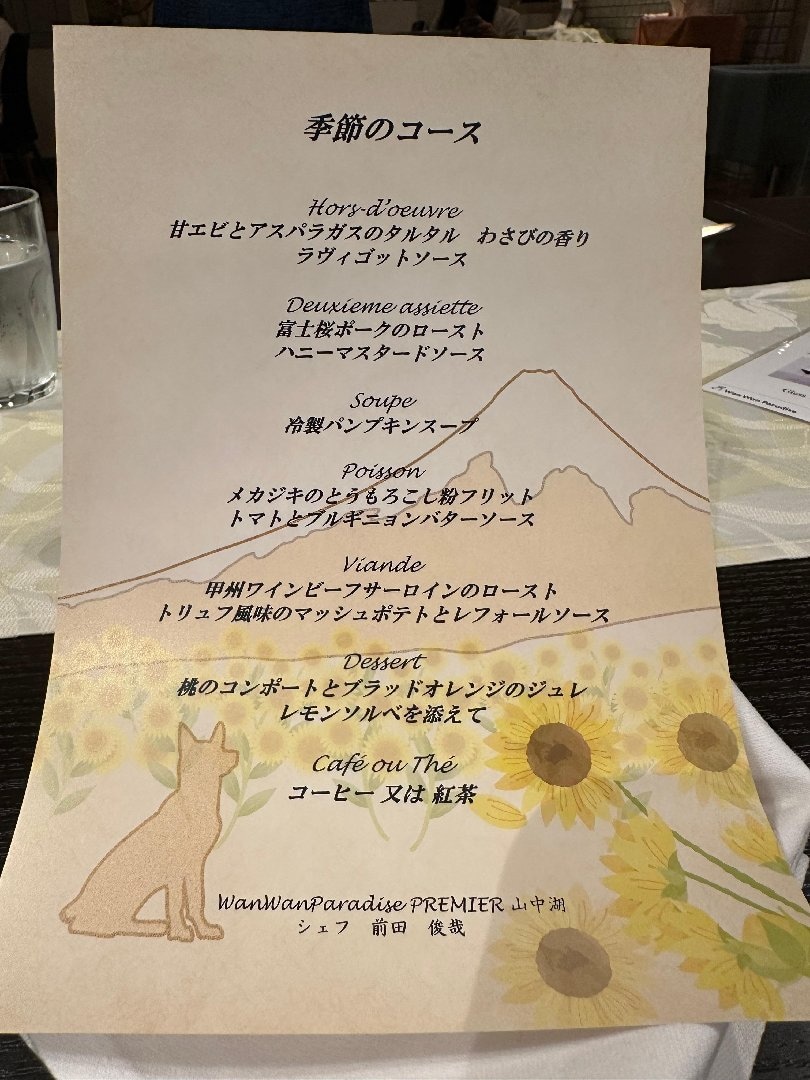 季節のコース
Hors-d'oeuvre
甘エビとアスパラガスのタルタル　わさびの香り
ラヴィゴットソース
Deuxieme assiette
富士桜ポークのロースト
ハニーマスタードソース
Soupe
冷製パンプキンスープ
Poisson
メカジキのとうもろこし粉フリット
トマトとブルギニョンバターソース
Viande
甲州ワインビーフサーロインのロースト
トリュフ風味のマッシュポテトとレフォールソース
Dessert
桃のコンポートとブラッドオレンジのジュレ
レモンソルベを添えて
Café ou Thé
コーヒー 又は 紅茶
WanWanParadise PREMIER 山中湖
シェフ　前田　俊哉
Wan Wan Paradise